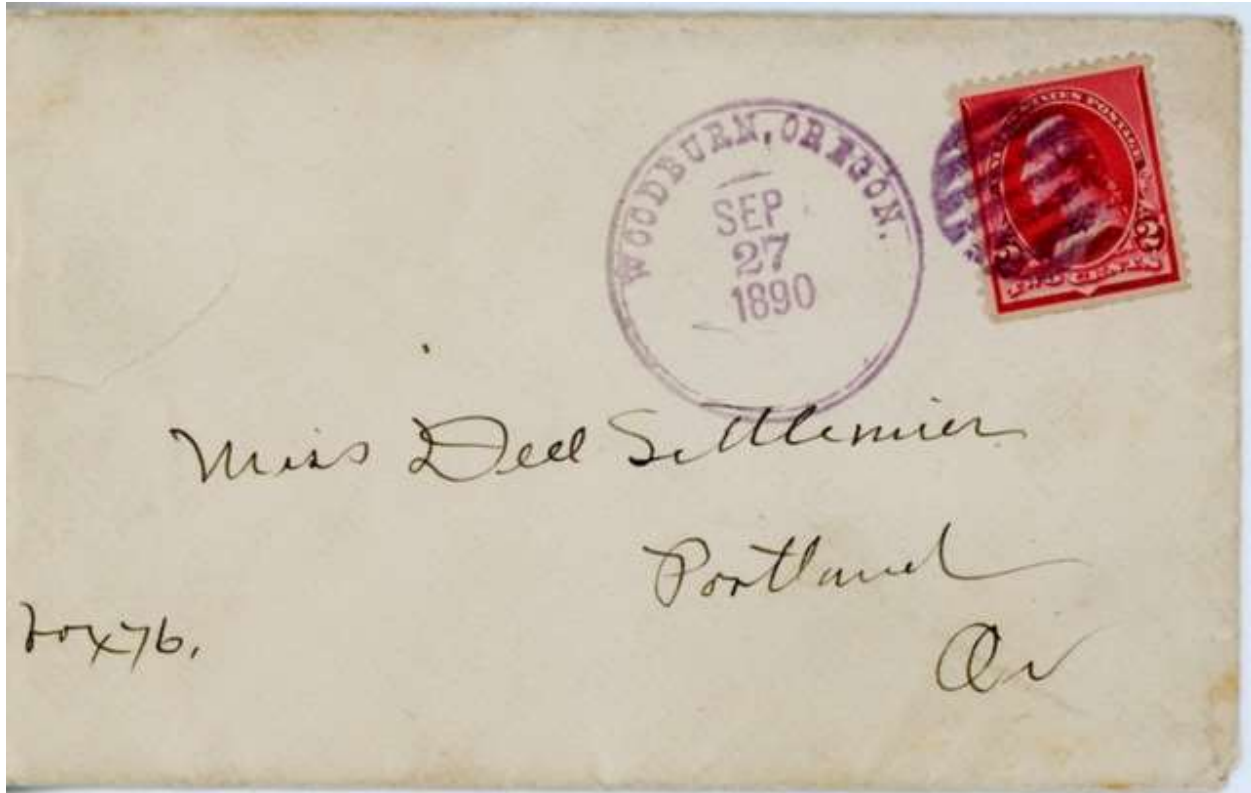 WOODBURN, OREGON.
SEP
27
1890
UNITED STATES POSTAGE
2 2
Miss Dell Settlemier
Portland
Or
Box 76.